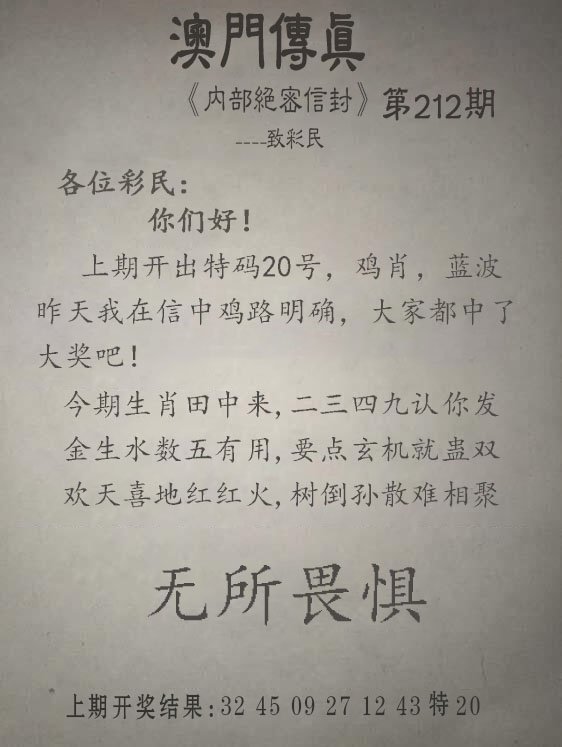 澳門傳眞
《内部絕密信封》第212期
----致彩民
各位彩民：
你们好！
上期开出特码20号，鸡肖，蓝波
昨天我在信中鸡路明确，大家都中了
大奖吧！
今期生肖田中来,二三四九认你发
金生水数五有用,要点玄机就蛊双
欢天喜地红红火,树倒孙散难相聚
无所畏惧
上期开奖结果:32 45 09 27 12 43 特 20